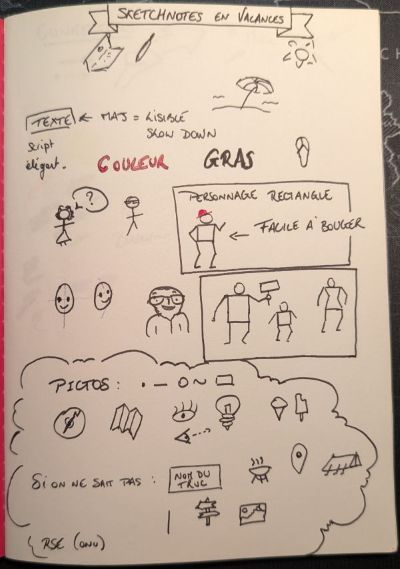 SKETCHNOTES EN VACANCES
TEXTE ← MAJ = LISIBLE
SLOW DOWN
Script
élégant.
COULEUR GRAS
?
PERSONNAGE RECTANGLE
← FACILE À BOUGER
PICTOS :
SI ON NE SAIT PAS : NOM DU
TRUC
RSE (ONU)